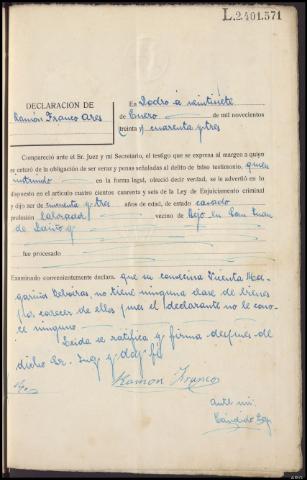 L.2.401.571
DECLARACION DE
Ramón Franco Ares
En Lodro a veintisiete
de Enero de mil novecientos
treinta y cuarenta y tres
Compareció ante el Sr. Juez y mi Secretario, el testigo que se expresa al margen a quyo
er enteró de la obligación de ser veraz y penas señaladas al delito de falso testimonio, quien
instruido en la forma legal, ofreció decir verdad, se le advertió en lo
dispuesto en el artículo cuatro cientos cuarenta y seis de la Ley de Enjuiciamiento criminal
y dijo ser de cincuenta y tres años de edad, de estado casado
profesión labrador vecino de Bejo en San Juan
de
fue procesado
Examinado convenientemente declara, que su convecina Vicenta
no tiene ninguna clase de bienes
por carecer de ellos pues el declarante no le cono-
ce ninguno
Leida se ratifica y firma despues de
dicho Sr. Juez y doy fé
Ramon Franco
Ante mi
Cándido